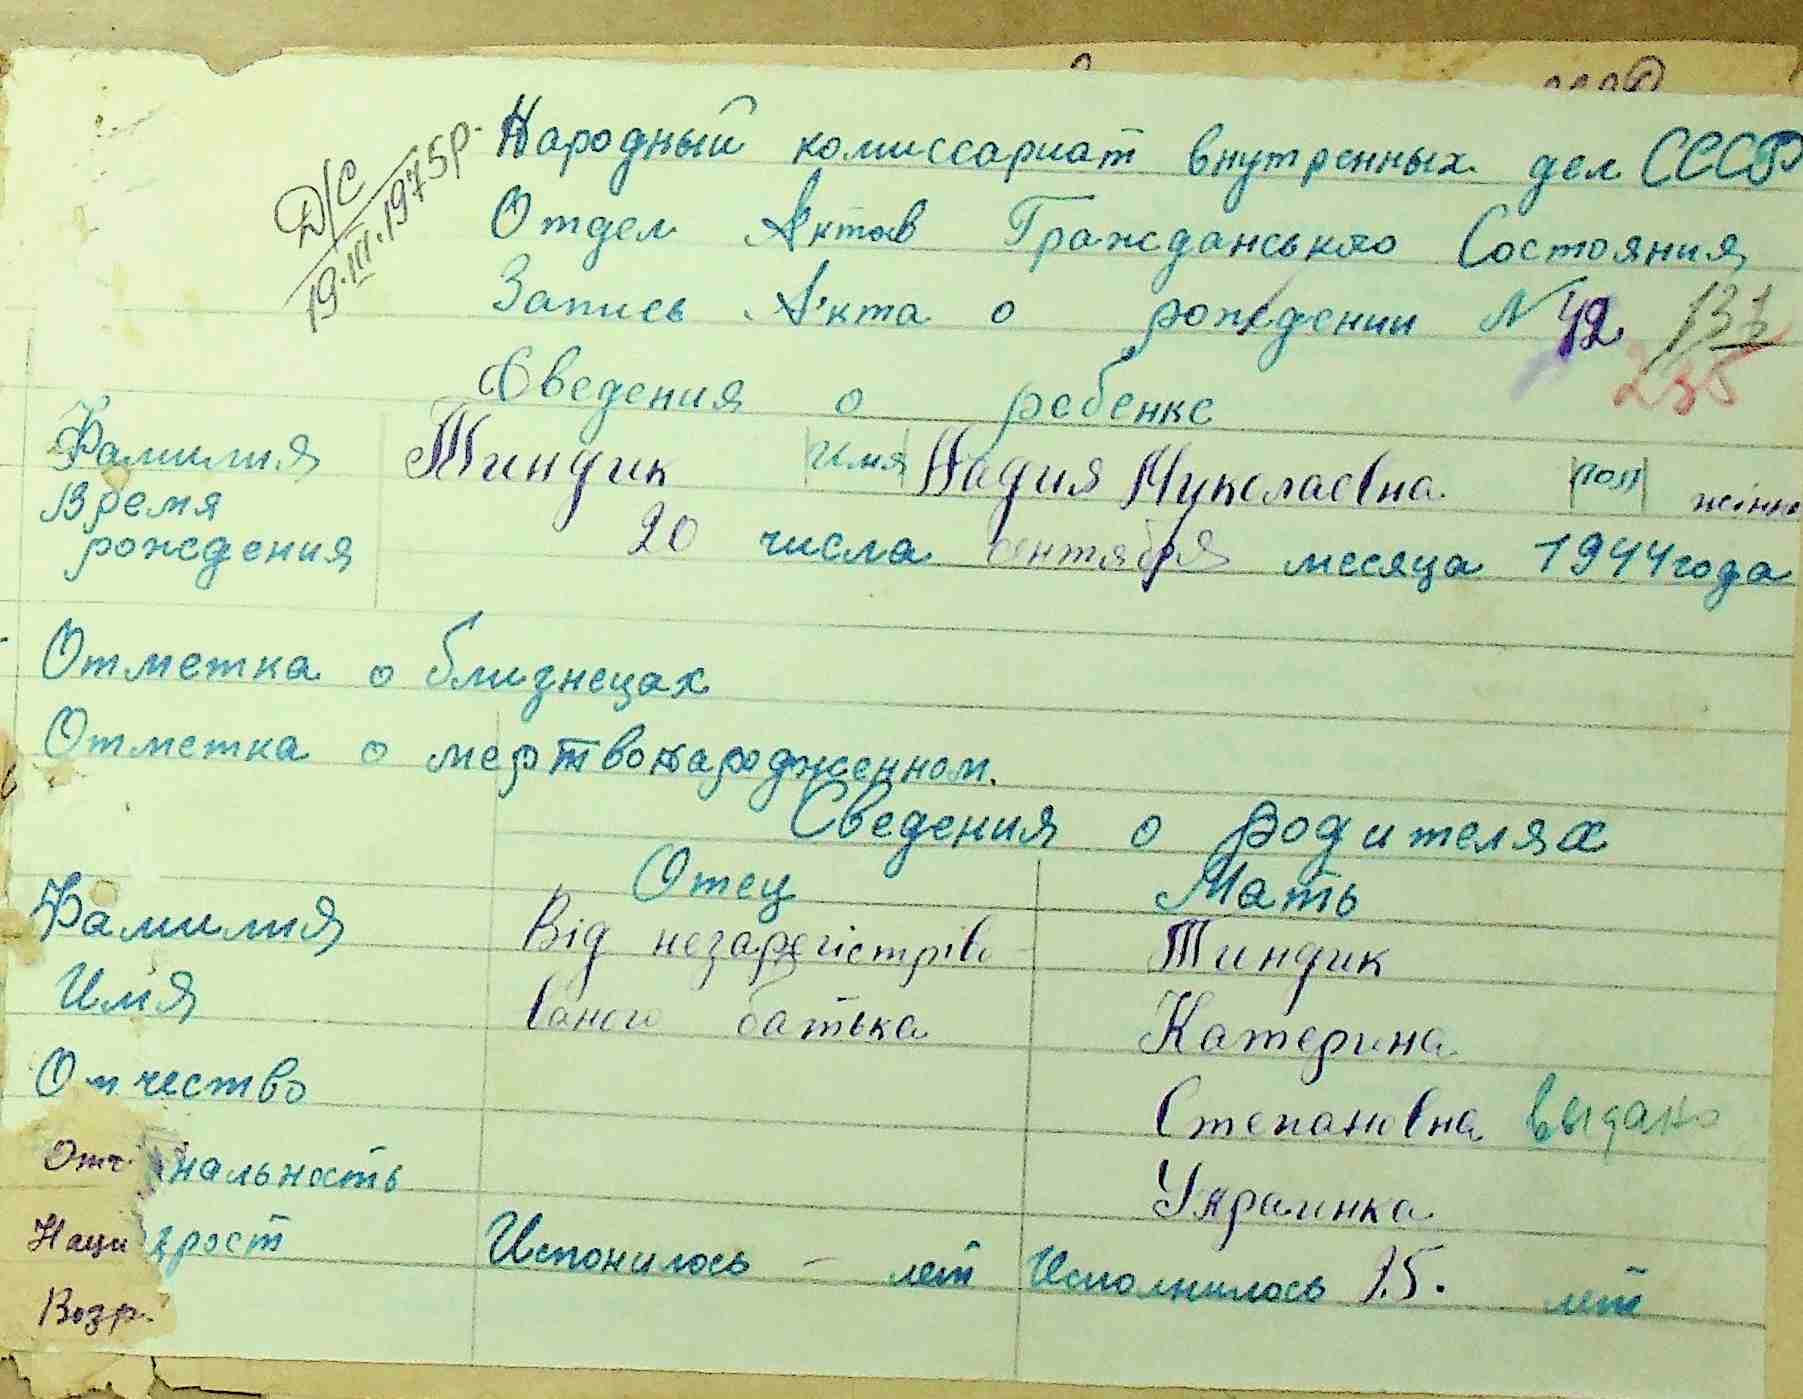 Д/С
19.III.1975р.
Народный комиссариат внутренных дел СССР
Отдел Актов Гражданського Состояния
Запись Акта о рождении N 42
235
Сведения о ребенке
Фамилия Тиндик Имя Надия Муколаевна пол жінк
Время
рождения 20 числа сентября месяца 1944 года
Отметка о близнецах
Отметка о мертвонародженном.
Сведения о родителях
Отец Мать
Фамилия Від незарегістріво Тиндик
Имя ваного батька Катерина
Отчество Степановна выдано
Отч. нальность Украинка
Наци зрост Испонилось – лет Исполнилось 15. лет
Возр.